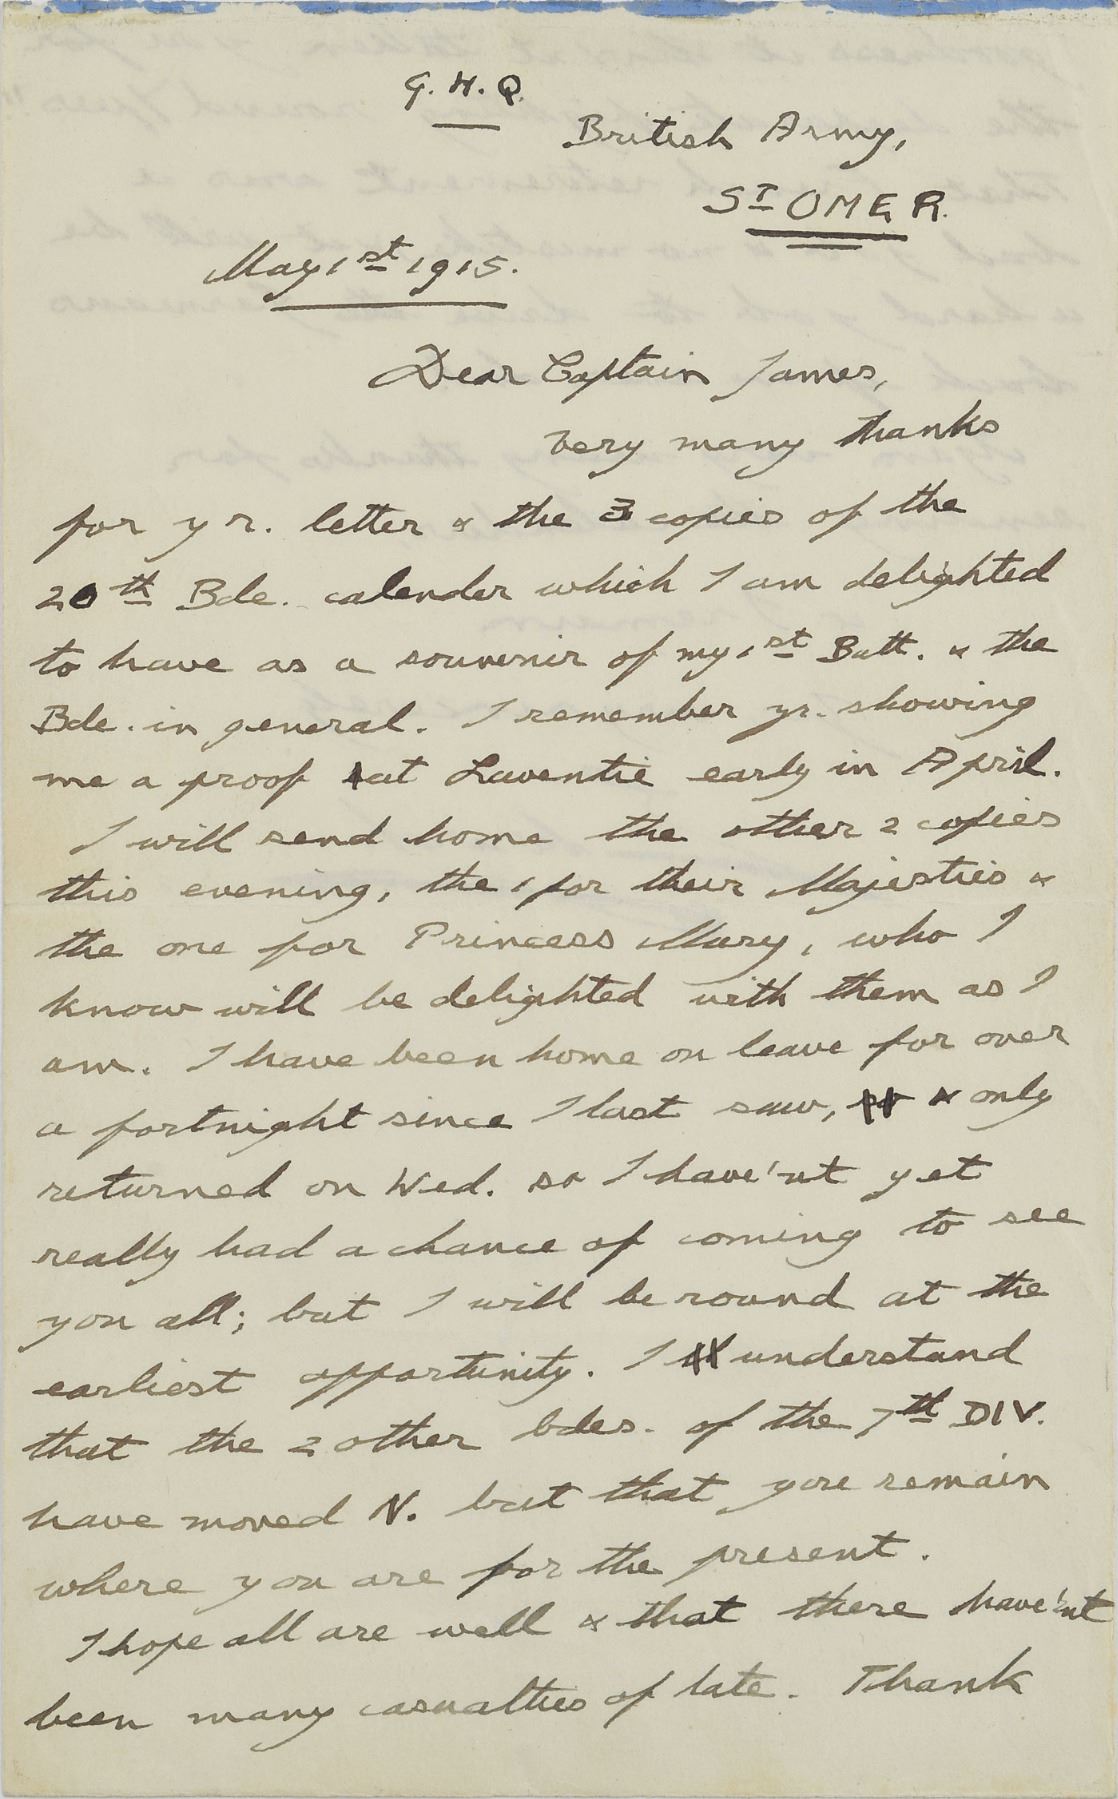 G. H. Q.
British Army,
St OMER.
May 1st 1915.
Dear Captain James,
Very many thanks
for yr. letter & the 3 copies of the
20th Bde. calender which I am delighted
to have as a souvenir of my 1st Batt. & the
Bde. in general. I remember yr. showing
me a proof at Laventie early in April.
I will send home the other 2 copies
this evening, the 1 for their Majesties &
the one for Princess Mary, who I
know will be delighted with them as I
am. I have been home on leave for over
a fortnight since I last saw, & only
returned on Wed. so I have'nt yet
really had a chance of coming to see
you all; but I will be round at the
earliest opportunity. I understand
that the 2 other bdes. of the 7th DIV.
have moved N. but that you remain
where you are for the present.
I hope all are well & that there have'nt
been many casualties of late. Thank